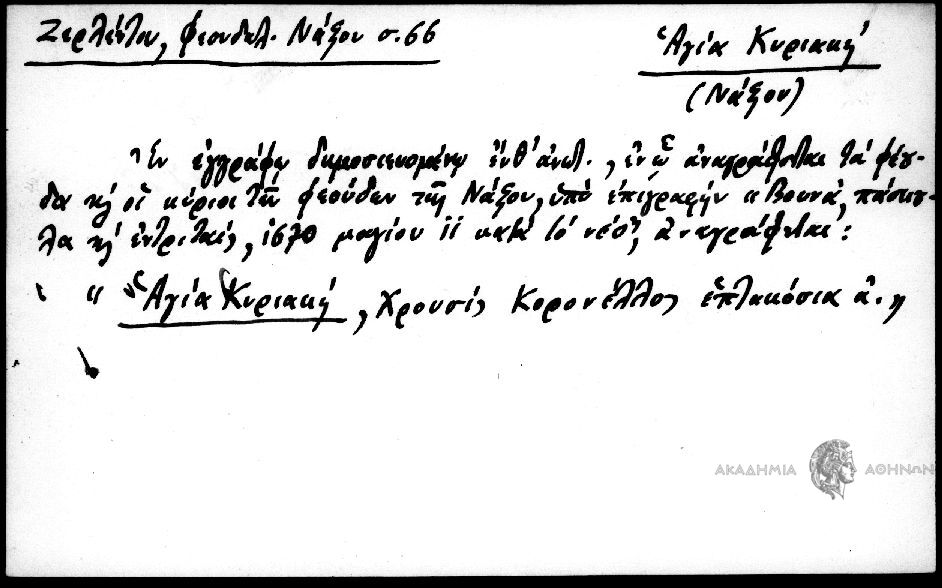 Ζερλέντου, φεουδαλ. Νάξου σ. 66
Ἁγία Κυριακή
(Νάξου)
Ἐν ἐγγράφῳ δημοσιευομένῳ ἔνθ' ἀνωτ., ἐν ᾧ ἀναγράφονται τὰ φέου-
δα κὴ οἱ κύριοι τῶν φεούδων τῆς Νάξου, ὑπὸ ἐπιγραφὴν «Βουνά, πάσκου-
λα κὴ ἐντριταίς, 1670 μαγίου 11 κατὰ τὸ νέο», ἀναγράφεται:
« "Ἁγία Κυριακή, Χρουσῆς Κορονέλλος ἑπτακόσια ἄ. »
ΑΚΑΔΗΜΙΑ ΑΘΗΝΩΝ